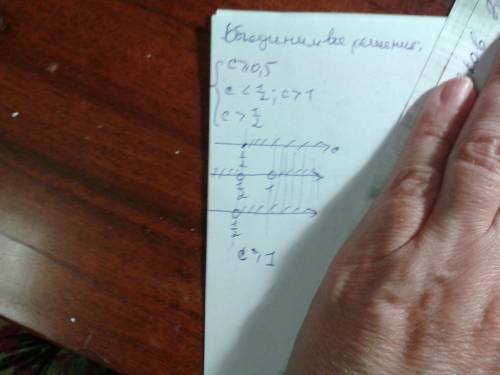 Объединим все решения.
c ≥ 0,5
c < 1/2; c > 1
c > 1/2
c
1/2
1/2
1
1/2
c > 1